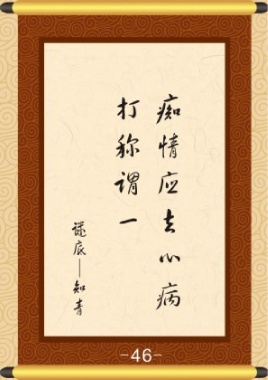 痴情应去心病
打称谓一
谜底——知青
-46-